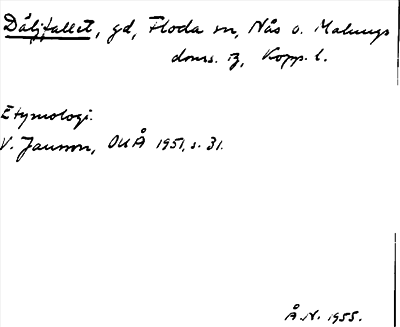 Dåljfallet, gd, Floda sn, Nås o. Malungs
doms. tg, Kopp. l.
Etymologi.
V. Jansson, OUÅ 1951, s. 31.
Å. N. 1955.